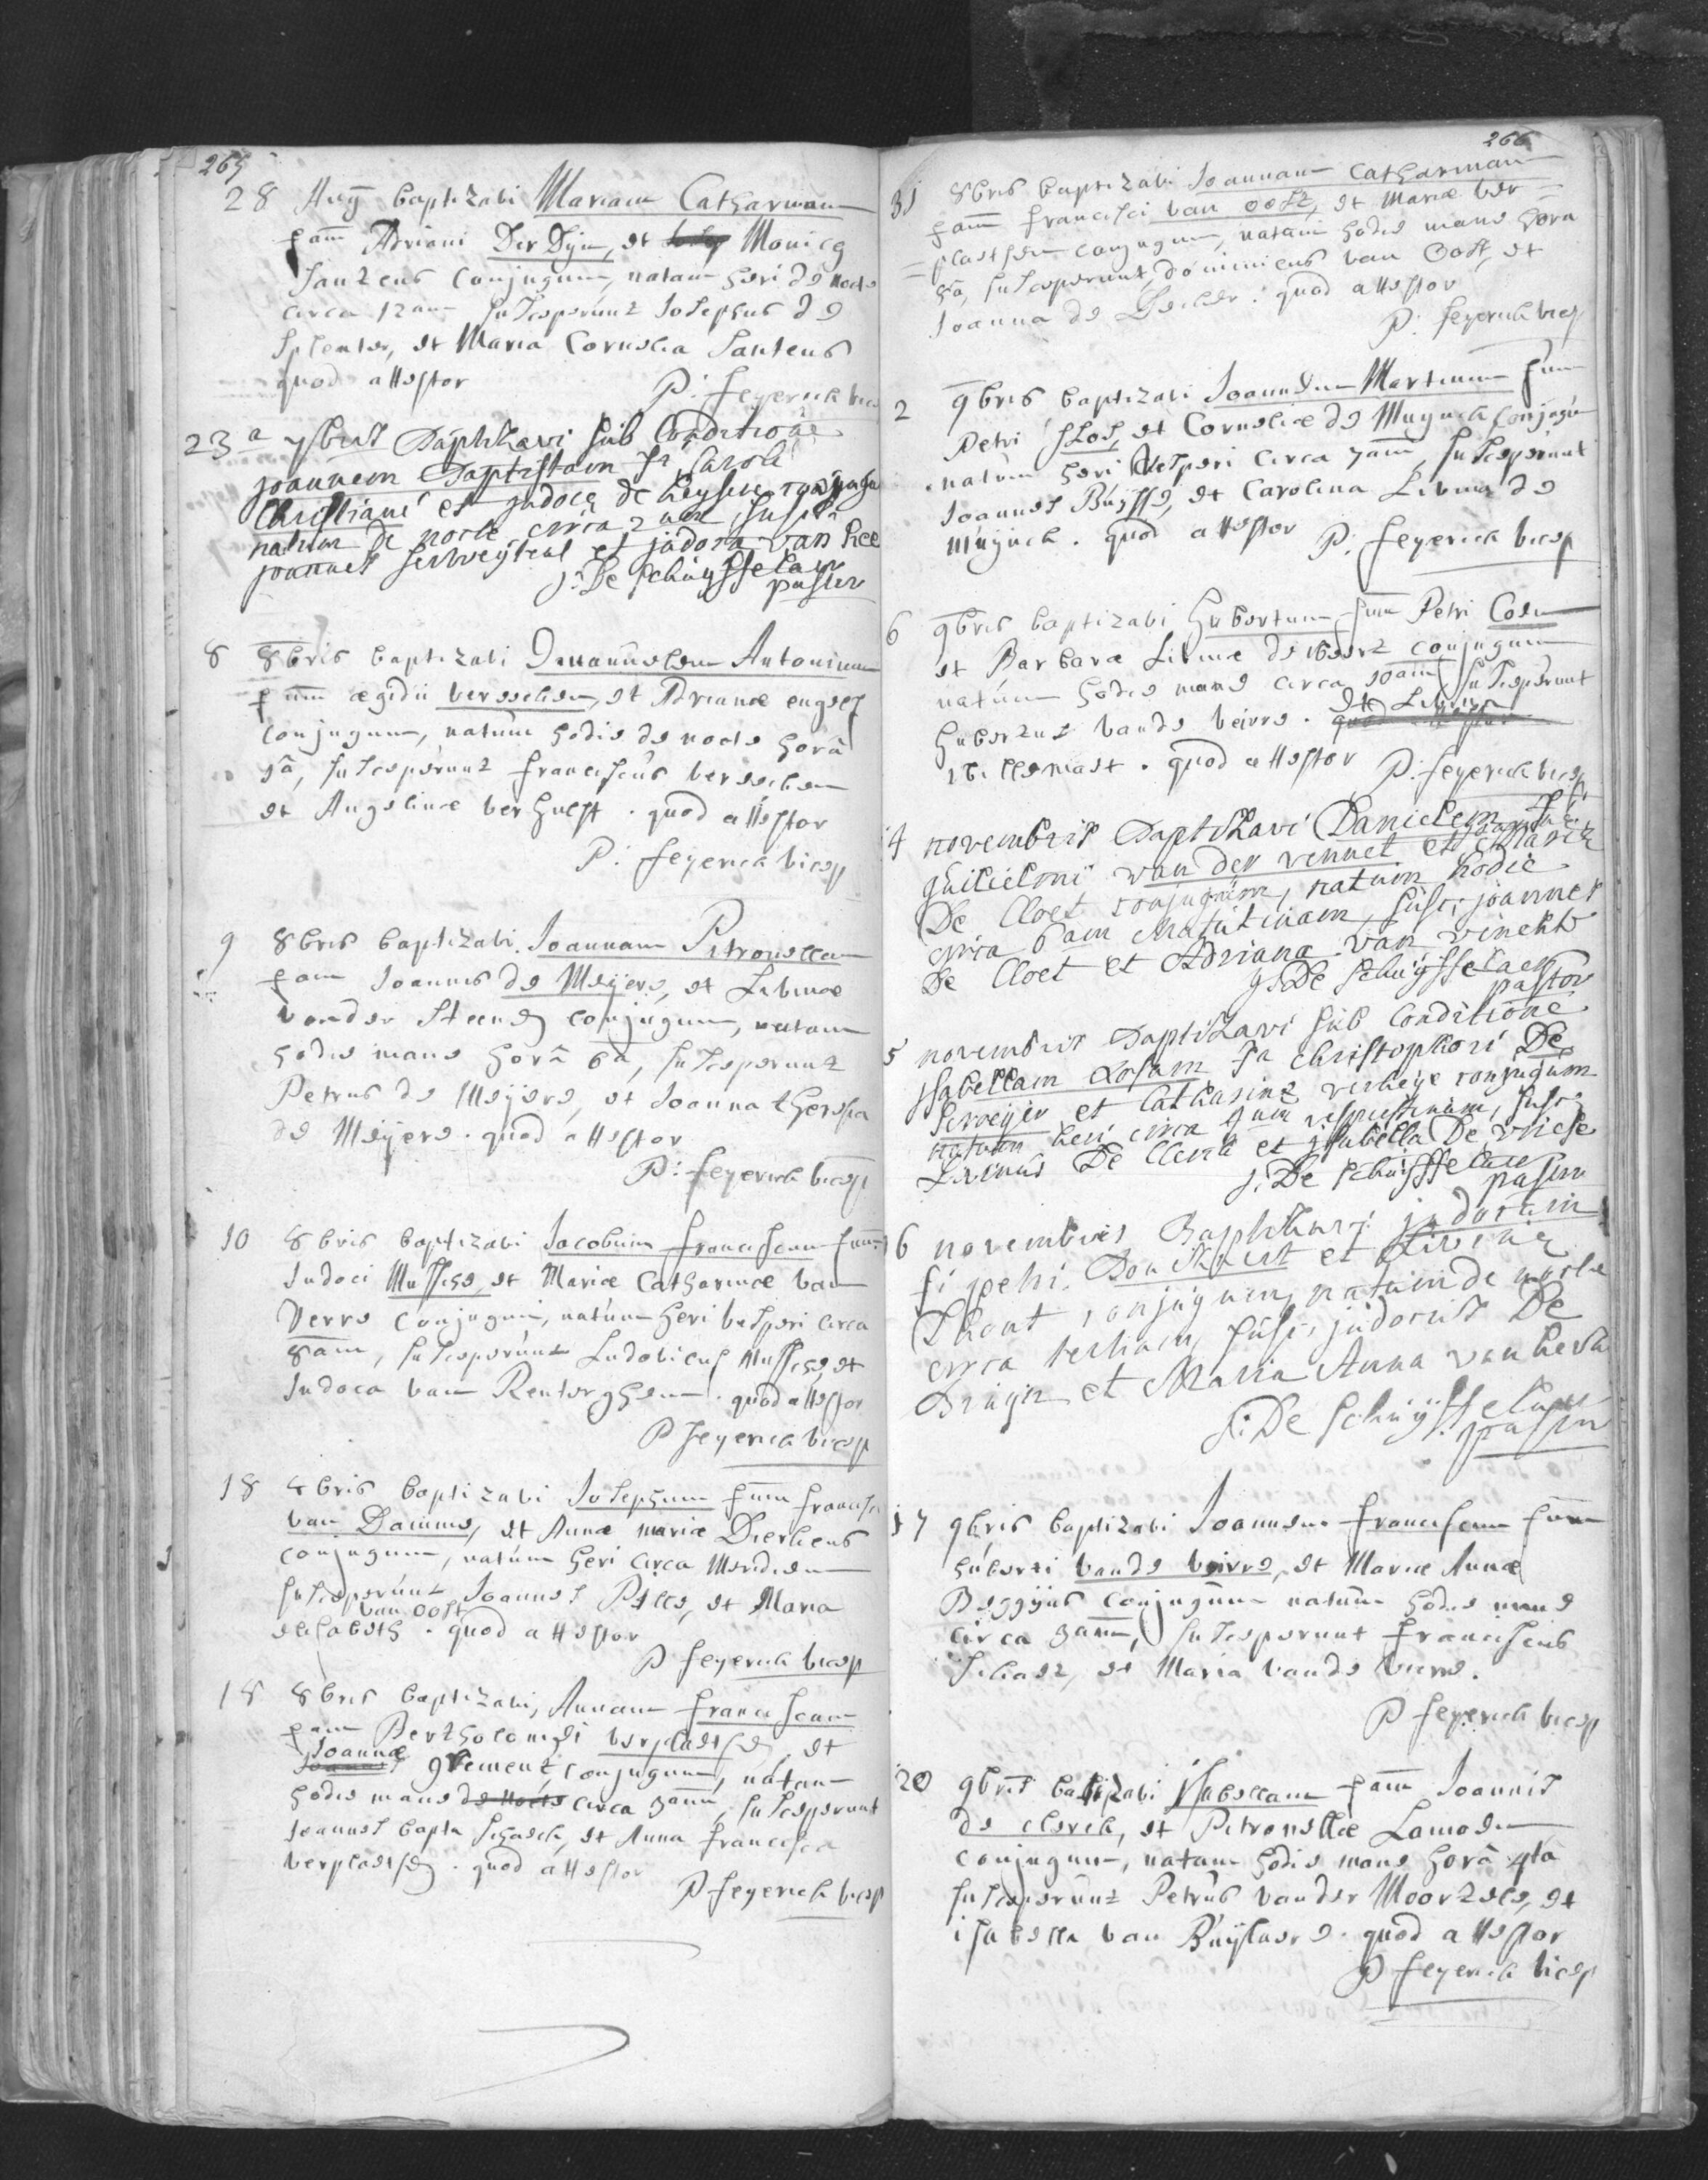 265
28 Aug baptizavi Mariam Catharinam
fam Adriani Der Dijn, et Monicæ
Santens conjugum, natam heri de nocte
circa 12am susceperunt Josephus de
Splenter, et Maria Cornelia Santens
quod attestor
P: feyerick vicep
23a 7bris Baptizavi sub Conditione
joannem Baptistam fs Caroli
Christiani et judocæ de keyser conjugu
natum de nocte circa 2am, susc
joannes serweytens et judoca van hee
J: De schuyffelaer
pastor
8 8bris baptizavi Emanuelem Antonium
fum ægidii vereecken, et Adrianæ engels
conjugum, natum hodie de nocte horâ
2â, susceperunt franciscus vereecken
et Angelina verhulst. quod attestor
P: feyerick vicep
9 8bris baptizavi Joannam Petronellam
fam Joannis de Meyere, et Livinæ
vander Steene conjugum, natam
hodie mane horâ 6â, susceperunt
Petrus de Meyere, et Joanna theresia
de Meyere. quod attestor
P: feyerick vicep
10 8bris baptizavi Jacobum franciscum fum
Judoci Mussche, et Mariæ Catharinæ van
Verre conjugum, natum heri vesperi circa
8am, susceperunt Ludovicus Mussche, et
Judoca van Renterghem. quod attestor
P feyerick vicep
18 8bris baptizavi Josephum fum francisci
van Damme, et Annæ mariæ Dierkens
conjugum, natum heri circa Meridiem
susceperunt Joannes Pelle, et Maria
van oost
elisabeth . quod attestor
P feyerick vicep
18 8bris baptizavi, Annam franciscam
fam Bertholomei verplaetse, et
Joannæ
Joannes Clement conjugum, natam
hodie mane de nocte circa 3am, susceperunt
Joannes bapta Schaeck, et Anna francisca
verplaetse. quod attestor
P feyerick vicep
266
31 8bris baptizavi Joannam Catharinam
fam francisci van oost, et Mariæ ver=
=plaetsen conjugum, natam hodie mane hora
5â, susceperunt, dominicus van Oost, et
Joanna de . quod attestor
P: feyerick vicep
2 9bris baptizavi Joannem Martinum fum
Petri Slos, et Corneliæ de Muynck conjugum
natum heri vesperi circa 7am, susceperunt
Joannes Buysse, et Carolina Livina de
Muynck. quod attestor P: feyerick vicep
6 9bris baptizavi Hubertum fum Petri Coen
et Barbaræ Livinæ de weert conjugum
natum hodie mane circa 10am, susceperunt
et Livina
hubertus vande veirre. quod attestor
willemast. quod attestor P: feyerick vicep
4 novembris Baptizavi Danielem
guilielmi van der vennet et Mariæ
De Cloet conjugum, natum hodie
circa 6am Matutinam, susc: joannes
De Cloet et Adriana van vinckt
J: De schuyffelaer
pastor
5 novembris Baptizavi sub Conditione
isabellam Rosam fa Christophori De
Serveyer et Catharinæ verheye conjugum
natam heri circa 9am vespertinam, susc:
Livinus De Clerck et isabella De vriese
J: De schuyffelaer
pastor
16 novembris Baptizavi judocum
fs petri Bouckaert et Livinæ
Dhont conjugum, natum de nocte
circa tertiam, susc: judocus De
Bruyn et Maria Anna van hecke
J: De schuyffelaer
pastor
17 9bris baptizavi Joannem franciscum fum
huberti vande veirre, et Mariæ Annæ
Beggyns conjugum natum hodie mane
circa 3am, susceperunt franciscus
Schaez, et Maria vande veirre.
P feyerick vicep
20 9bris baptizavi isabellam fam Joannis
de clerck, et Petronellæ Lamoen
conjugum, natam hodie mane horâ 4ta
susceperunt Petrus vander Moorzele, et
isabella van Buylaere. quod attestor
P feyerick vicep